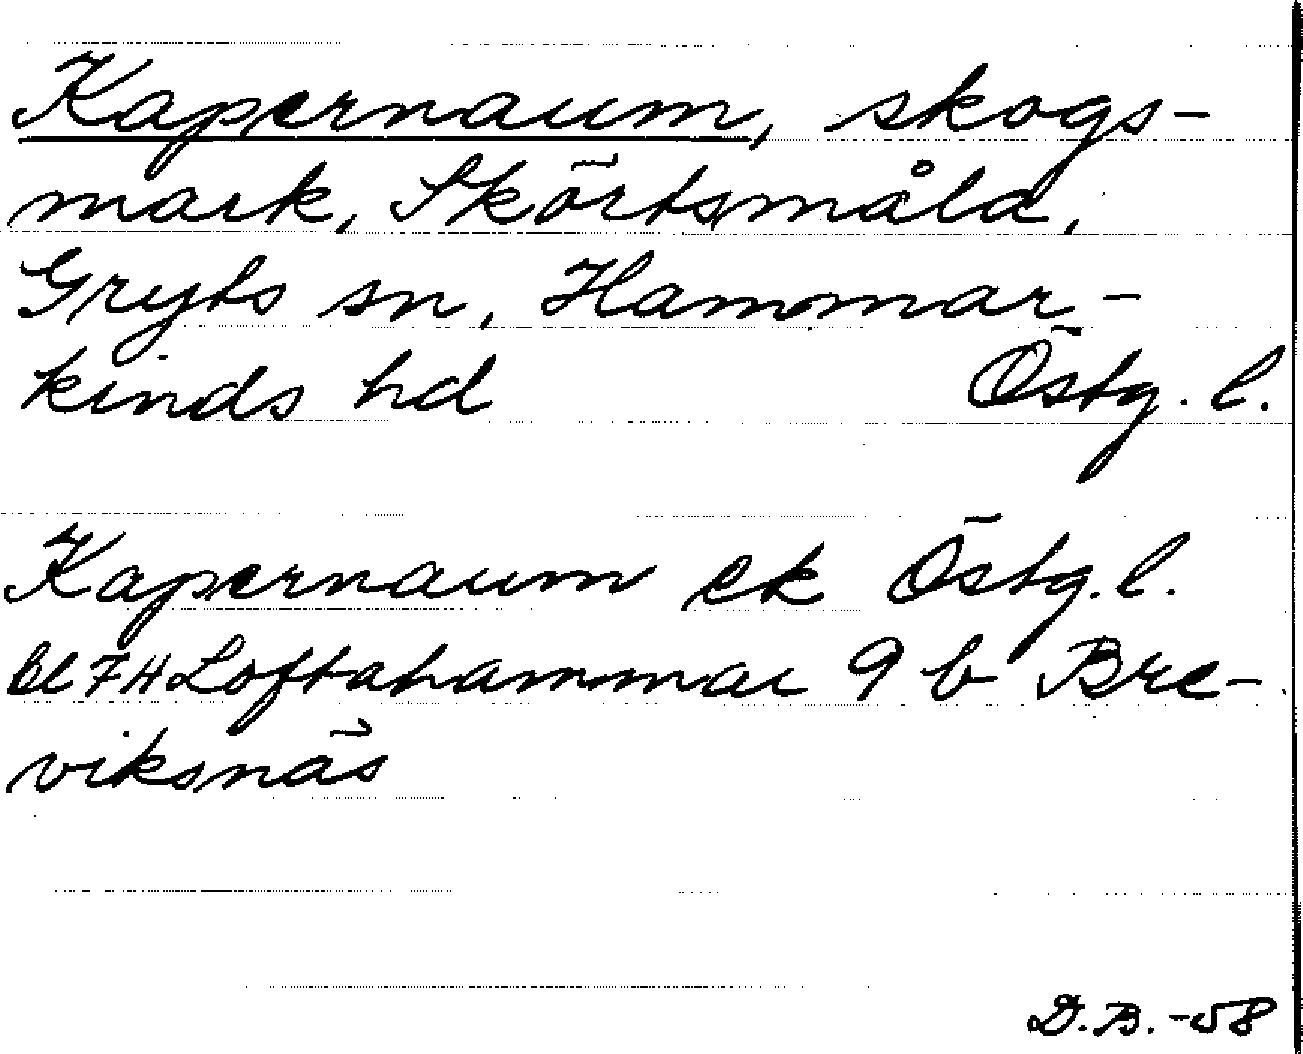 Kapernaum, skogs-
mark, Skörtsmåla,
Gryts sn, Hammar-
kinds hd Östg. l.
Kapernaum ek Östg. l.
bl 7H Loftahammar 9 b Bre-
viksnäs
D.B. -58